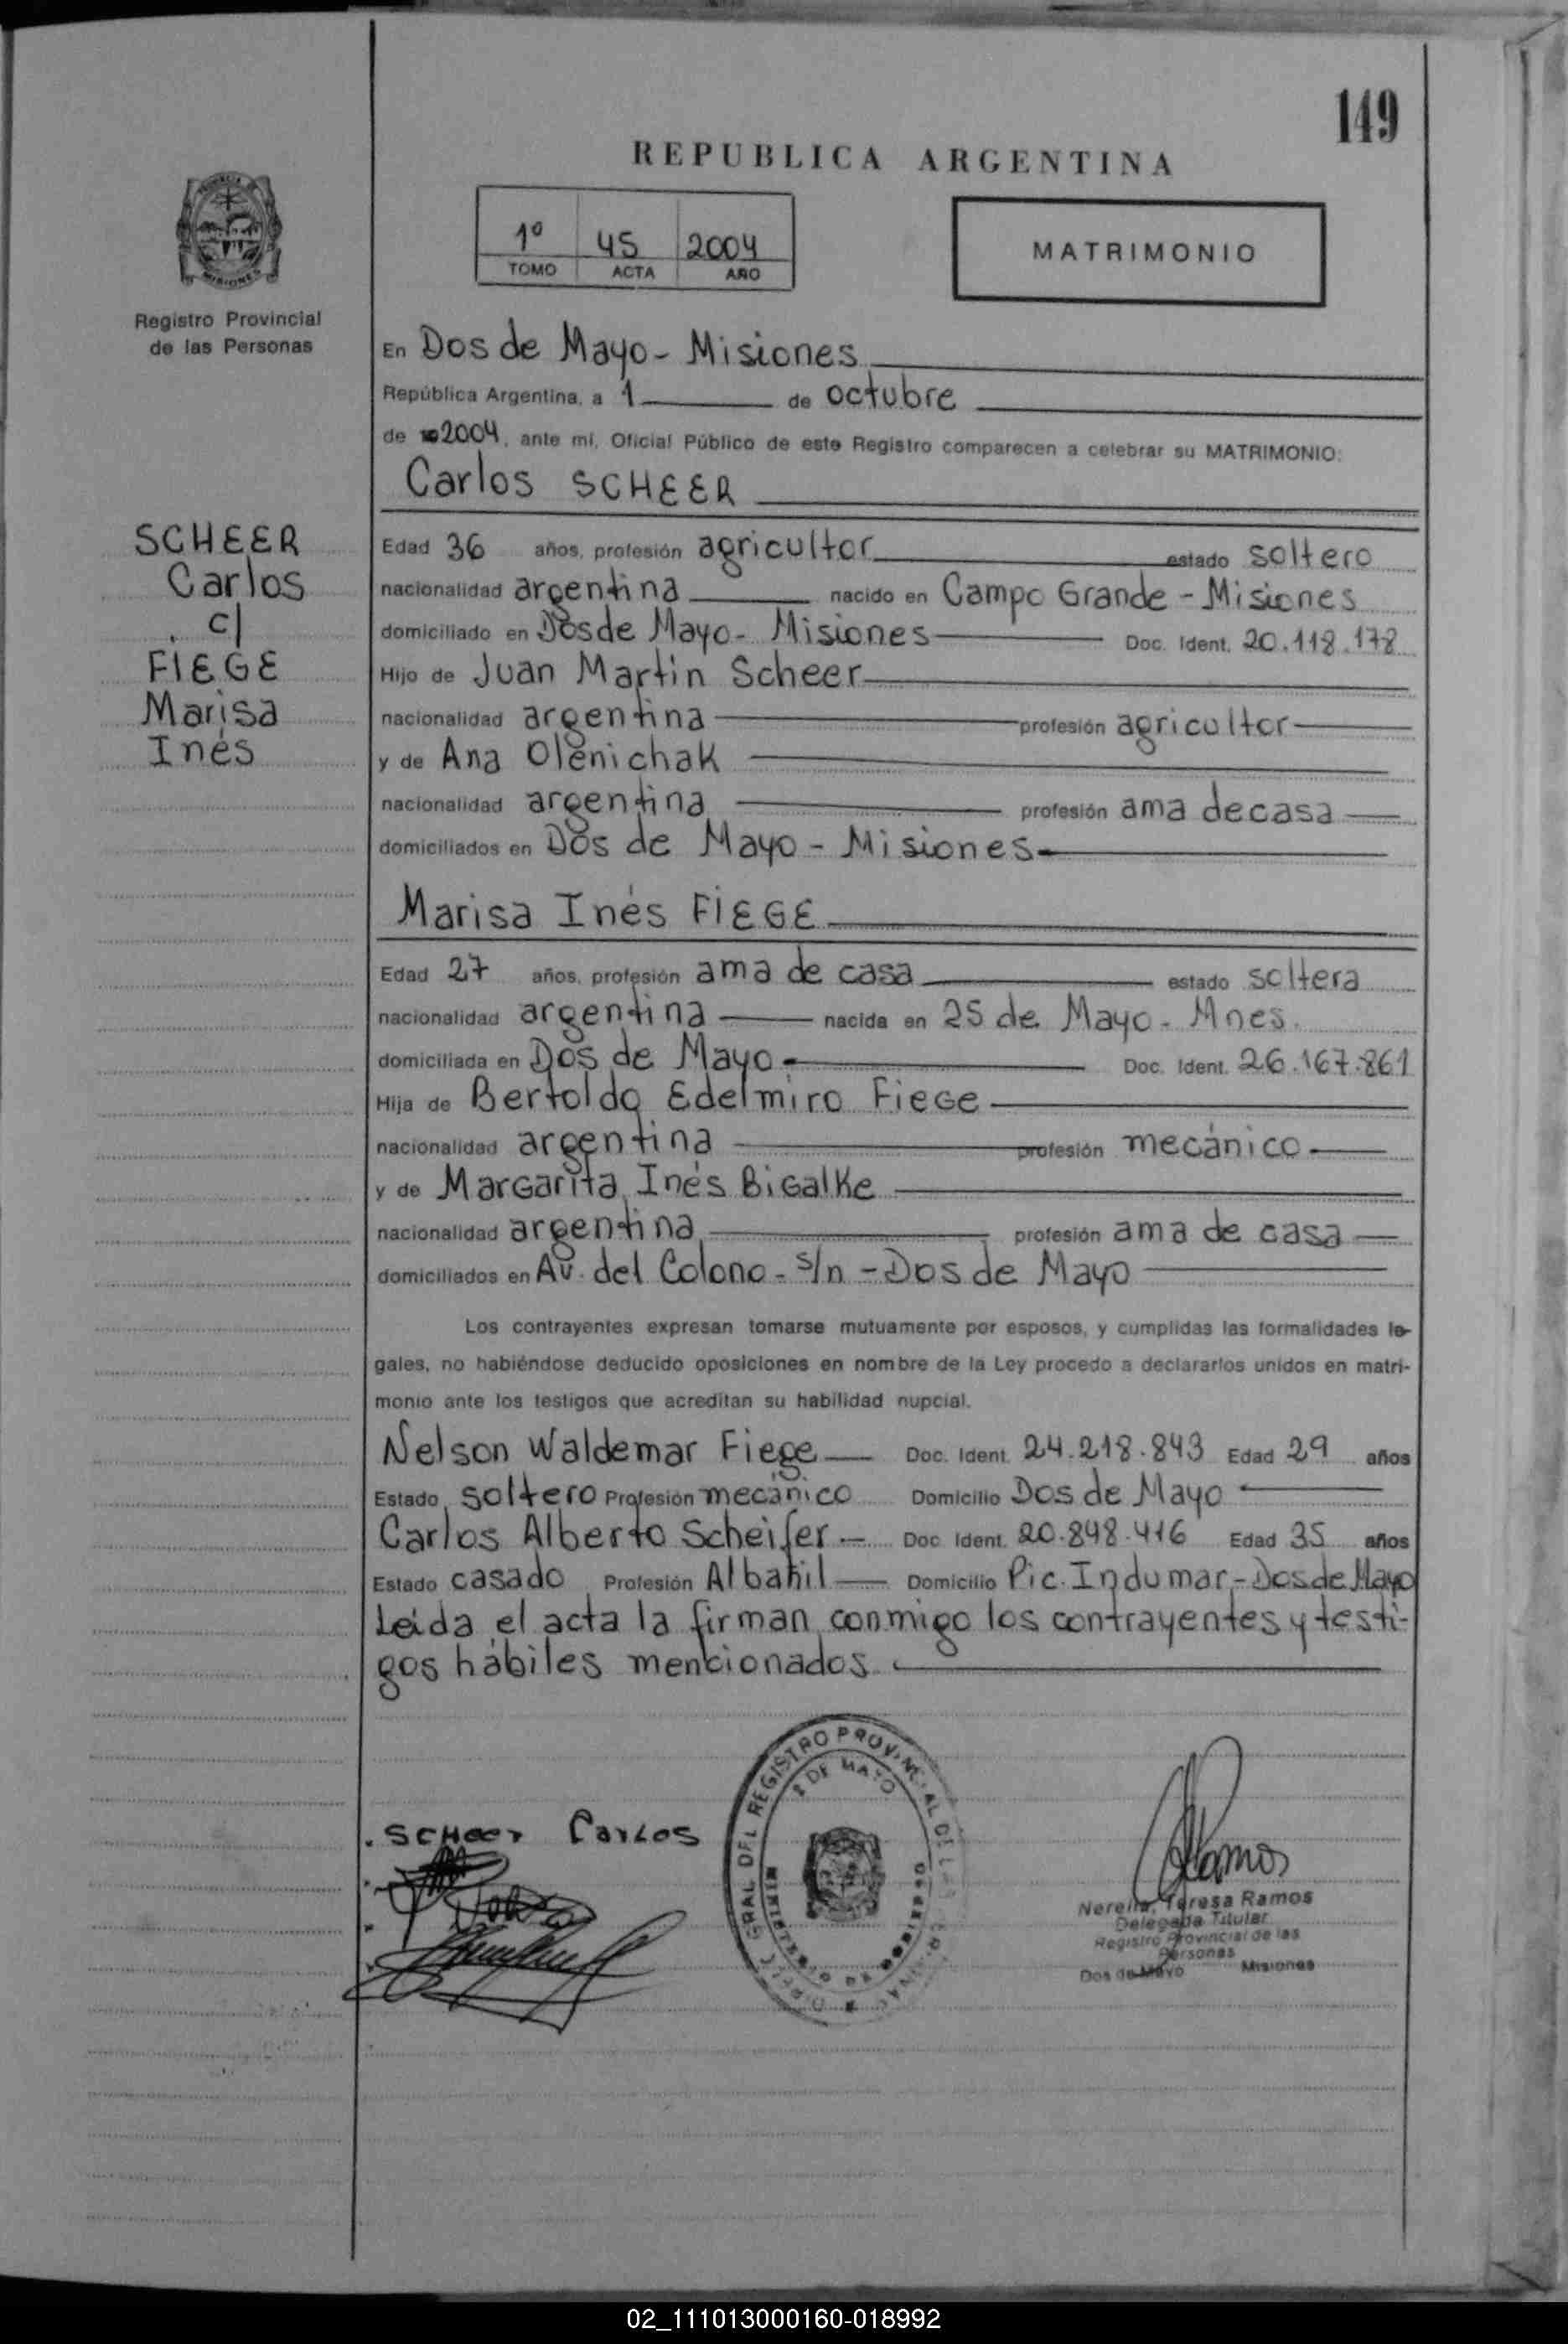 149
REPUBLICA ARGENTINA
1º 45 2004
TOMO ACTA AÑO
MATRIMONIO
Registro Provincial
de las Personas
SCHEER
Carlos
c/
FIEGE
Marisa
Inés
En Dos de Mayo - Misiones
República Argentina, a 1 de octubre
de 2004, ante mí, Oficial Público de este Registro comparecen a celebrar su MATRIMONIO:
Carlos SCHEER
Edad 36 años, profesión agricultor estado soltero
nacionalidad argentina nacido en Campo Grande - Misiones
domiciliado en Dos de Mayo - Misiones Doc. Ident. 20.118.178
Hijo de Juan Martin Scheer
nacionalidad argentina profesión agricultor
y de Ana Olenichak
nacionalidad argentina profesión ama de casa
domiciliados en Dos de Mayo - Misiones
Marisa Inés FIEGE
Edad 27 años, profesión ama de casa estado soltera
nacionalidad argentina nacida en 25 de Mayo - Mnes.
domiciliada en Dos de Mayo Doc. Ident. 26.167.861
Hija de Bertoldo Edelmiro Fiege
nacionalidad argentina profesión mecánico
y de Margarita Inés Bigalke
nacionalidad argentina profesión ama de casa
domiciliados en Av. del Colono - s/n - Dos de Mayo
Los contrayentes expresan tomarse mutuamente por esposos, y cumplidas las formalidades le-
gales, no habiéndose deducido oposiciones en nombre de la Ley procedo a declararlos unidos en matri-
monio ante los testigos que acreditan su habilidad nupcial.
Nelson Waldemar Fiege Doc. Ident. 24.218.843 Edad 29 años
Estado soltero Profesión mecánico Domicilio Dos de Mayo
Carlos Alberto Scheifer Doc. Ident. 20.848.416 Edad 35 años
Estado casado Profesión Albañil Domicilio Pic. Indumar - Dos de Mayo
Leída el acta la firman conmigo los contrayentes y testi-
gos hábiles mencionados.
SCHeer Carlos
REGISTRO PROVINCIAL DE LAS
2 DE MAYO
Ramos
Nerella Teresa Ramos
Delegada Titular
Registro Provincial de las
Personas
Dos de Mayo Misiones
02_111013000160-018992